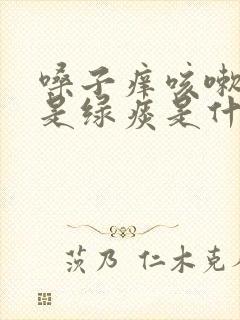 嗓子痒咳嗽
是绿痰是什
茨乃 仁木克